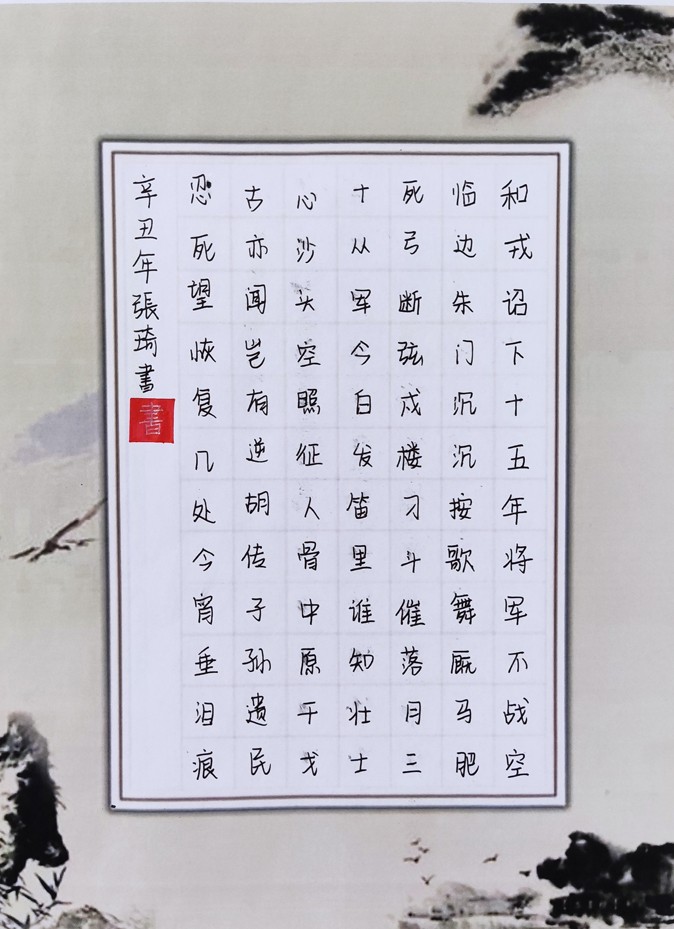 和戎诏下十五年将军不战空
临边朱门沉沉按歌舞厩马肥
死弓断弦戍楼刁斗催落月三
十从军今白发笛里谁知壮士
心沙头空照征人骨中原干戈
古亦闻岂有逆胡传子孙遗民
忍死望恢复几处今宵垂泪痕
辛丑年張琦書
書